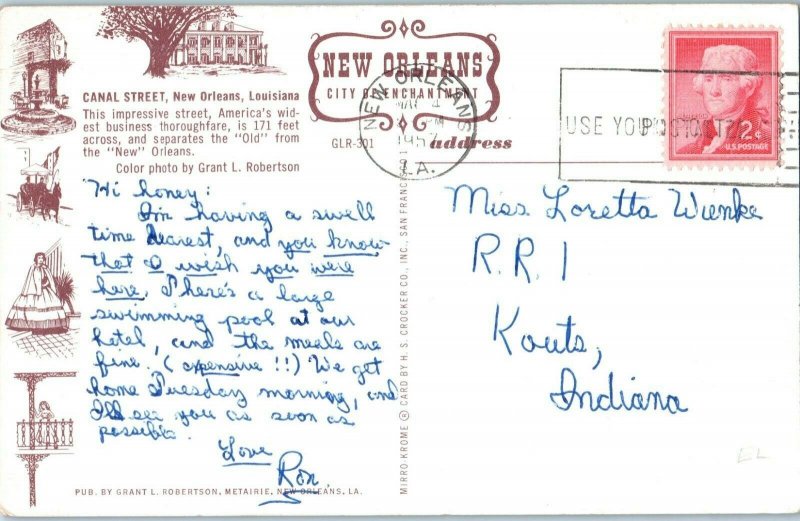 CANAL STREET, New Orleans, Louisiana
This impressive street, America's wid-
est business thoroughfare, is 171 feet
across, and separates the "Old" from
the "New" Orleans.
Color photo by Grant L. Robertson
NEW ORLEANS
CITY OF ENCHANTMENT
GLR-301
address
NEW ORLEANS
4
PM
1957
LA.
USE YOUR
2¢
U.S. POSTAGE
Hi honey:
I'm having a swell
time dearest, and you know
that I wish you were
here. There's a large
swimming pool at our
hotel, and the meals are
fine. (expensive !!) We get
home Tuesday morning, and
I'll see you as soon as
possible.
Love
Ron
Miss Loretta Wienke
R.R. 1
Kouts,
Indiana
MIRRO-KROME ® CARD BY H. S. CROCKER CO., INC., SAN FRANC
PUB. BY GRANT L. ROBERTSON, METAIRIE, NEW ORLEANS, LA.
EL